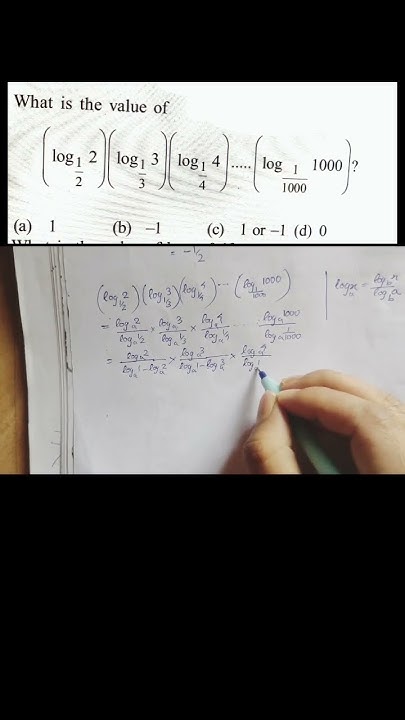 What is the value of
(log_{1/2} 2)(log_{1/3} 3)(log_{1/4} 4).....(log_{1/1000} 1000)?
(a) 1 (b) −1 (c) 1 or −1 (d) 0
= −1/2
(log_{1/2} 2)(log_{1/3} 3)(log_{1/4} 4)...(log_{1/1000} 1000)
log_a x = log_b x / log_b a
= log_a 2 / log_a 1/2 × log_a 3 / log_a 1/3 × log_a 4 / log_a 1/4 ..... log_a 1000 / log_a 1/1000
= log_a 2 / log_a 1 − log_a 2 × log_a 3 / log_a 1 − log_a 3 × log_a 4 / log_a 1